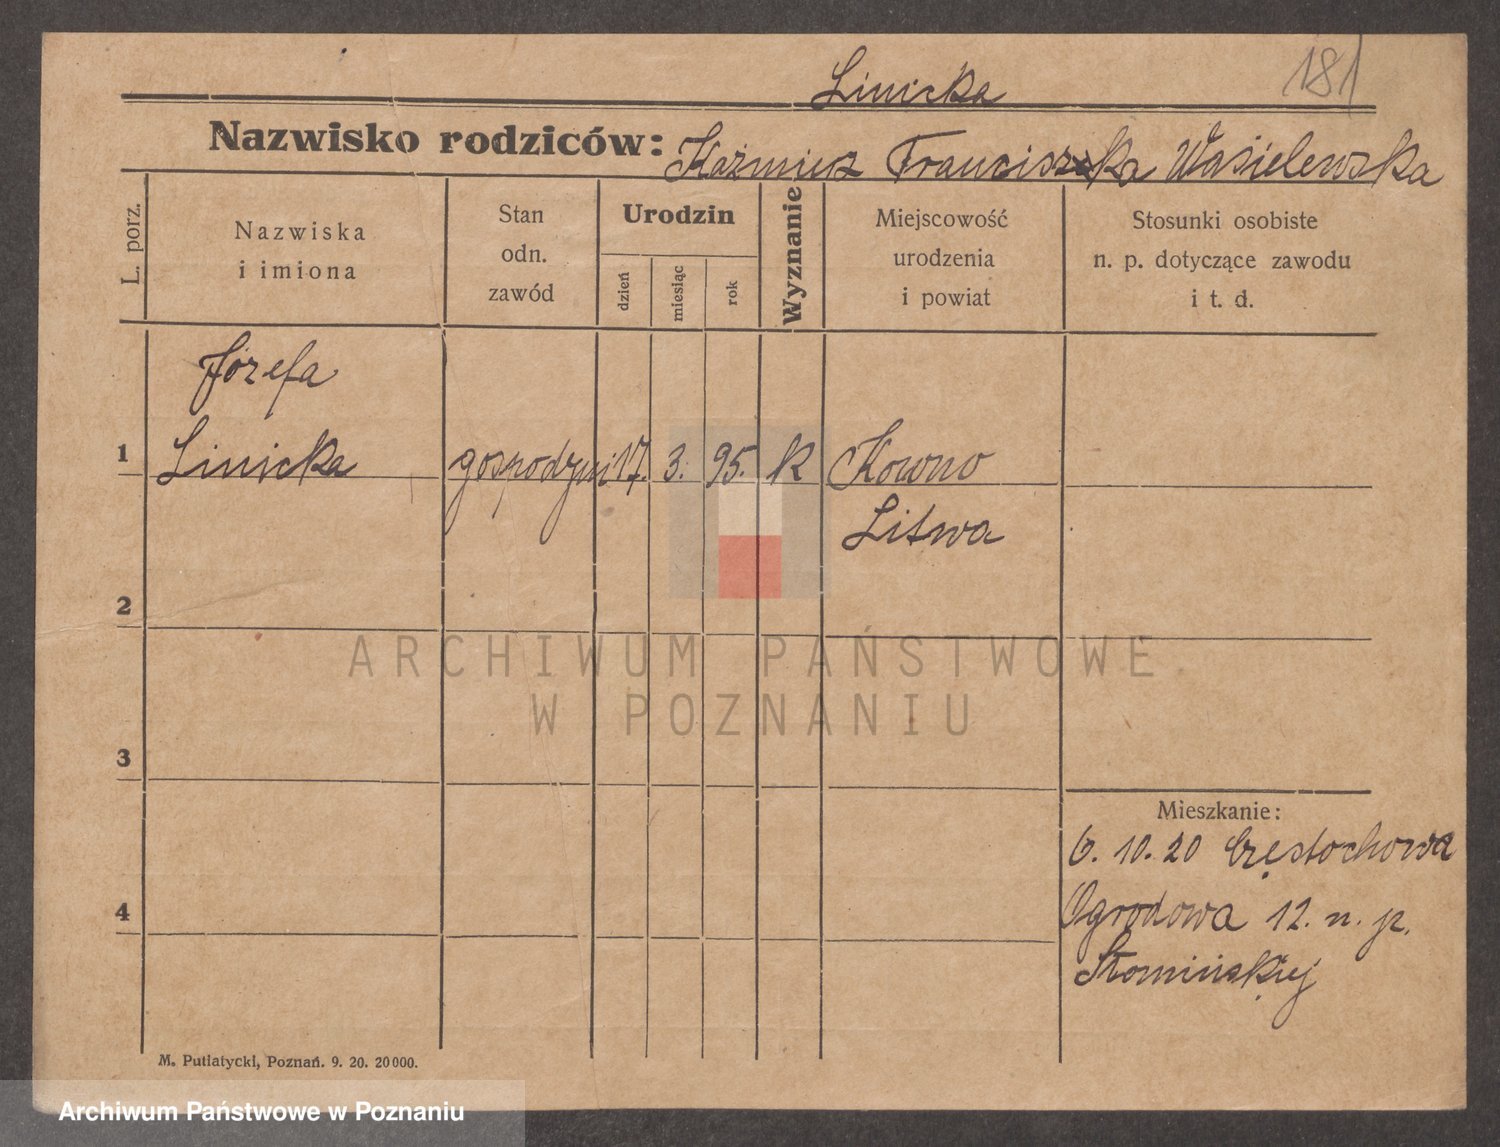 Linicka
181
Nazwisko rodziców: Kaźmierz Franciszka Wasielewska
L. porz.
Nazwiska
i imiona
Stan
odn.
zawód
Urodzin
dzień
miesiąc
rok
Wyznanie
Miejscowość
urodzenia
i powiat
Stosunki osobiste
n. p. dotyczące zawodu
i t. d.
Józefa
1 Linicka gospodyni 17. 3. 95. k Kowno
Litwa
2
3
4
Mieszkanie:
6. 10. 20 Częstochowa
Ogrodowa 12. n. p.
Słomińskiej
M. Putiatycki, Poznań. 9. 20. 20000.
ARCHIWUM PAŃSTWOWE
W POZNANIU
Archiwum Państwowe w Poznaniu